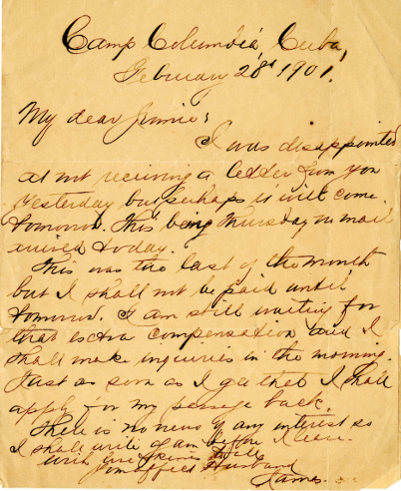 Camp Columbia, Cuba,
February 28th 1901.
My dear Jennie:
I was disappointed
at not receiving a letter from you
yesterday but perhaps it will come
tomorrow. This being Thursday no mail
arrived today.
This was the last of the month
but I shall not be paid until
tomorrow. I am still waiting for
that extra compensation and I
shall make inquiries in the morning.
Just as soon as I get that I shall
apply for my passage back.
There is no news of any interest so
I shall write again before I leave.
With love
Your affect Husband
James.